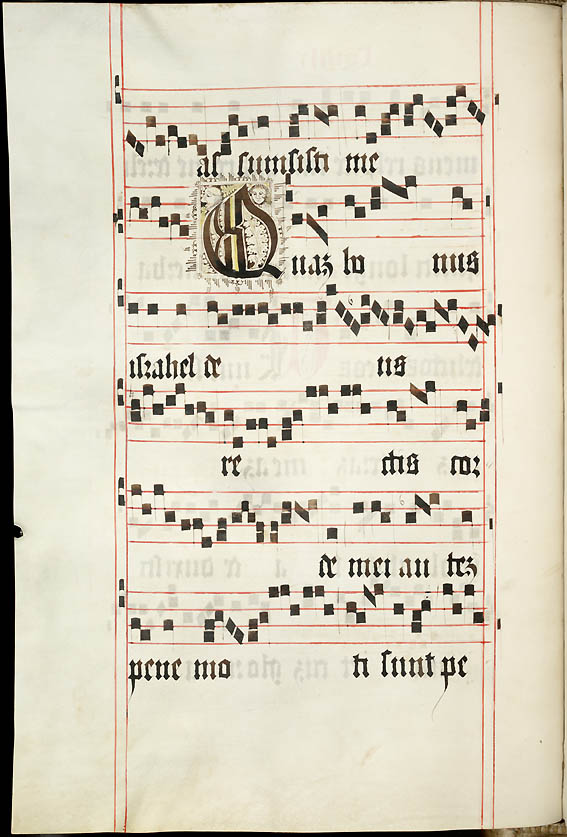 as sumsisti me
Quaz bo nus
israhel de us
re ctis cor
de mei au tez
pene mo ti sunt pe